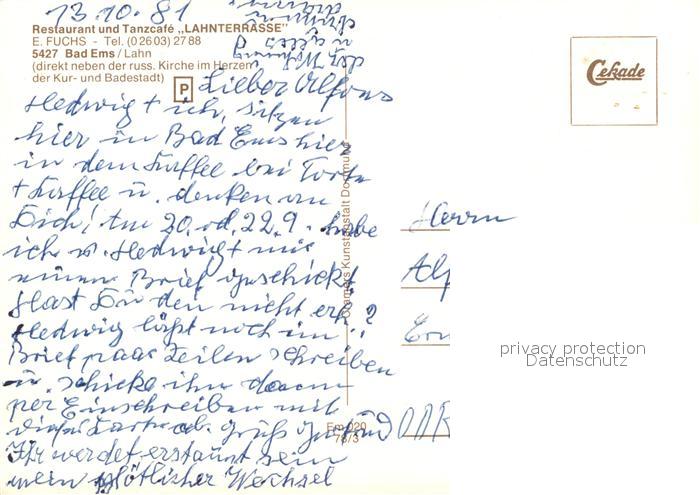 13.10.81
Restaurant und Tanzcafé „LAHNTERRASSE"
E. FUCHS - Tel. (02603) 2788
5427 Bad Ems / Lahn
(direkt neben der russ. Kirche im Herzen
der Kur- und Badestadt)
P
Cekade
Lieber Alfons
Hedwig + ich, sitzen
hier in Bad Ems hier
in dem Kaffee bei Torte
+ Kaffee u. denken an
Dich! Am 20. od. 22.9. habe
ich u. Hedwig + mir
einen Brief geschickt
Hast Du den nicht erh.?
Hedwig läßt noch im
Brief paar Zeilen schreiben
u. schicke ihn dann
per Einschreiben mit
dieser Karte ab. Gruß
Ihr werdet erstaunt sein
mein plötzlicher Wechsel
Cramers Kunstanstalt Dortmund
Em 020
78/3
Herrn
Alf
DDR
privacy protection
Datenschutz